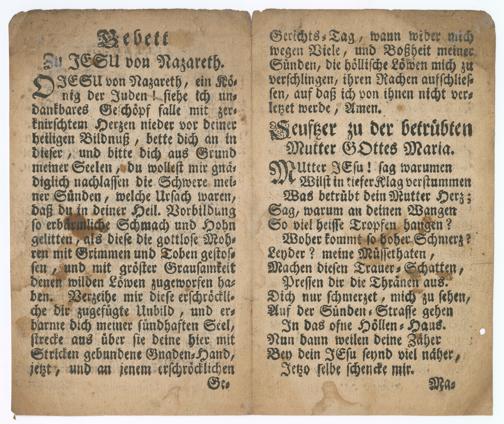 Gebett
Zu JESU von Nazareth.
O JESU von Nazareth, ein Kö-
nig der Juden! siehe ich un-
dankbares Geschöpf falle mit zer-
knirschtem Herzen nieder vor deiner
heiligen Bildnuß, bette dich an in
dieser, und bitte dich aus Grund
meiner Seelen, du wollest mir gnä-
diglich nachlassen die Schwere mei-
ner Sünden, welche Ursach waren,
daß du in deiner Heil. Vorbildung
so erbärmliche Schmach und Hohn
gelitten, als diese die gottlose Moh-
ren mit Grimmen und Toben gestos-
sen, und mit gröster Grausamkeit
denen wilden Löwen zugeworfen ha-
ben. Verzeihe mir diese erschröckli-
che dir zugefügte Unbild, und er-
barme dich meiner sündhaften Seel,
strecke aus über sie deine hier mit
Stricken gebundene Gnaden-Hand,
jetzt, und an jenem erschröcklichen
Ge-
Gerichts-Tag, wann wider mich
wegen Viele, und Boßheit meiner
Sünden, die höllische Löwen mich zu
verschlingen, ihren Rachen aufschlies-
sen, auf daß ich von ihnen nicht ver-
letzet werde, Amen.
Seuftzer zu der betrübten
Mutter GOttes Maria.
MUtter JEsu! sag warumen
Wilst in tiefer Klag verstummen
Was betrübt dein Mutter Herz;
Sag, warum an deinen Wangen
So viel heisse Tropfen hangen?
Woher kommt so hoher Schmerz?
Leyder? meine Müssethaten,
Machen diesen Trauer-Schatten,
Pressen dir die Thränen aus.
Dich nur schmerzet, mich zu sehen,
Auf der Sünden-Strasse gehen
In das ofne Höllen-Haus.
Nun dann weilen deine Zäher
Bey dein JEsu seynd viel näher,
Jetzo selbe schencke mir.
Ma-